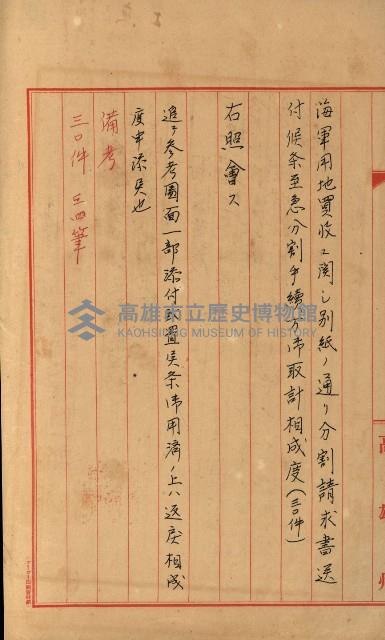 海軍用地買収ニ関シ別紙ノ通リ分割請求書送
付候条至急分割手續方御取計相成度(三〇件)
右照會ス
追テ参考圖面一部添付致置候条御用濟ノ上ハ返戻相成
度申添候也
備考
三〇件 三四筆
高雄州
高雄市立歷史博物館
KAOHSIUNG MUSEUM OF HISTORY